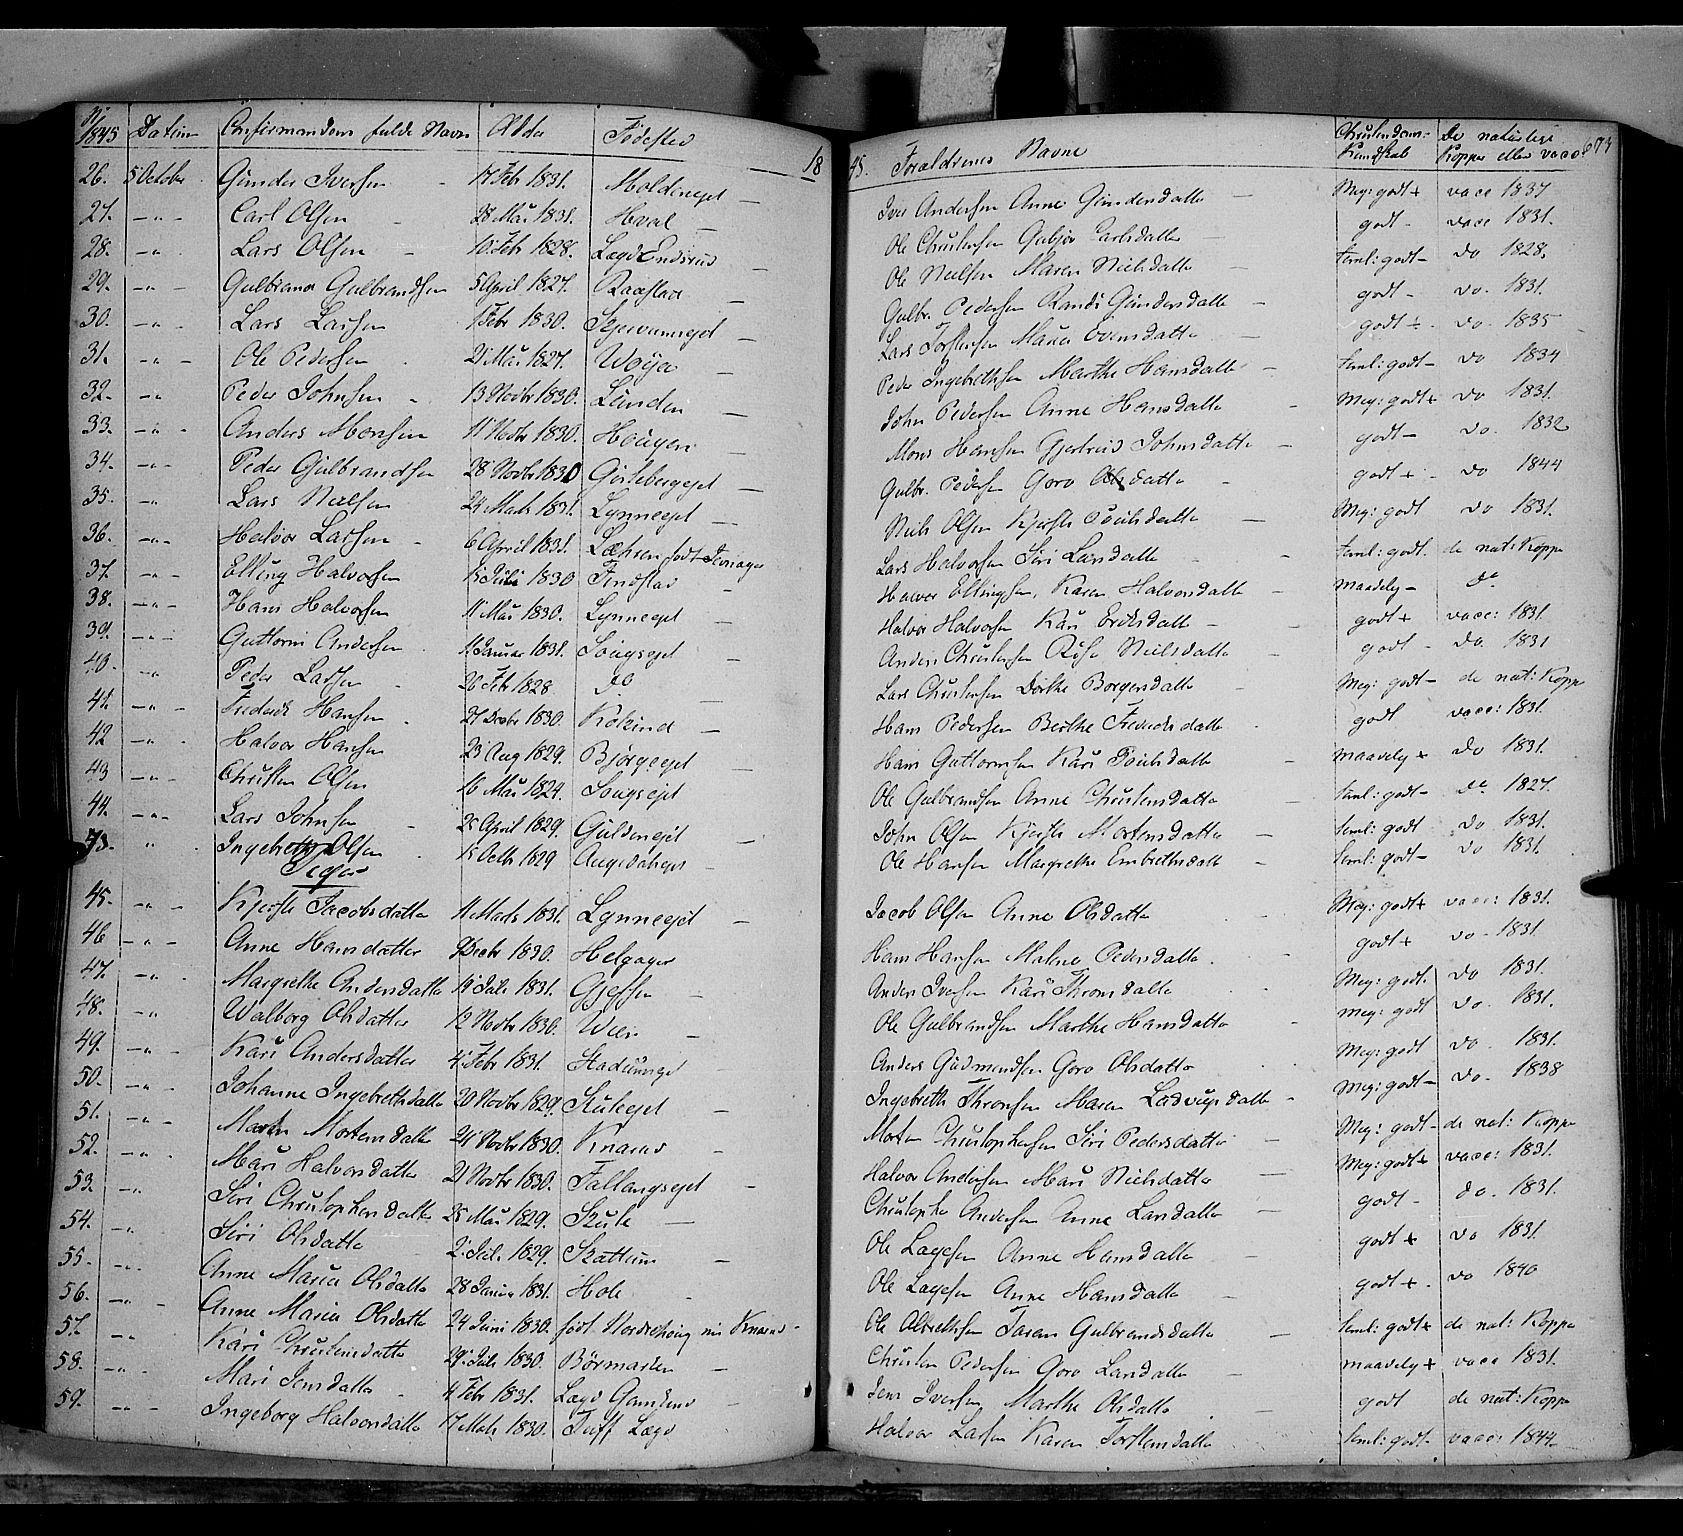 N: 1845 Datum Confirmandens fulde Navn Alder Fødested 18
26. 5 October Gunder Iversen 17 Febr 1831. Moldeneyet
27. Carl Olsen 28 Mai 1831. Hval
28. Lars Olsen 10 Febr 1828. Lægd Endrerud
29. Gulbrand Gulbrandsen 5 April 1827. Raastad
30. Lars Larsen 1 Febr 1830.
31. Ole Pedersen 21 Mai 1827. Woya
32. Peder Johnsen 13 Novbr 1830. Lunden
33. Anders Monsen 11 Novbr 1830. Hougen
34. Peder Gulbrandsen 28 Novbr 1830
35. Lars Nielsen 24 Marts 1831. Lynneeyet
36. Halvor Larsen 6 April 1831. født Jevnager
37. Elling Halvorsen 15 Juli 1830 Findstad
38. Hans Halvorsen 11 Mai 1830. Lynneeyet
39. Guttorm Andersen 11 Januar 1831. Sougseyet
40. Peder Larsen 26 Febr 1828 do
41. Frederik Hansen 27 Decbr 1830.
42 Halvor Hansen 23 Aug 1829. Bjørgeeyet
43 Christen Olsen 16 Mai 1829. Sougseyet
44. Lars Johnsen 25 April 1829. Guldeneyet
Ingebreth Olsen 15 Octb 1829
Piger
45. Kjersti Jacobsdatter 11 Marts 1831. Lynneeyet
46 Anne Hansdatter 9 Decbr 1830. Helgager
47. Margrethe Andersdatter 14 Juli 1831. Gjessen
48. Walborg Olsdatter 12 Novbr 1830. Wien
49. Kari Andersdatter 4 Febr 1831.
50. Johanne Ingebrethsdatter 20 Novbr 1829. Stuleeyet
51. Mortensdatter 24 Novbr 1830. Knarud
52. Mari Halvorsdatter 21 Novbr 1830. Fallangseyet
53. Siri Christophersdatter 25 Mai 1829.
54. Siri Olsdatter 2 Juli 1829. Skattum
55. Anne Maria Olsdatter 28 Januar 1831. Hole
56. Anne Maria Olsdatter 24 Juni 1830. født Nordrehoug nu Knarud
57. Kari Christensdatter 29 Juli 1830. Børmarken
58. Mari Jensdatter 4 Febr 1831. Lægd
59. Ingeborg Halvorsdatter 17 Marts 1830. Tuff Lægd
45. Forældrenes Navne Christendoms- Kundskab De naturlige Kopper eller vacc 673
Iver Andersen Anne Gundersdatter Meg: godt + vacc 1837
Ole Christensen Gubjør Carlsdatter godt - vacc 1831.
Ole Nielsen Maren Nielsdatter Teml: godt - do 1828.
Gulbr. Pedersen Randi Gundersdatter godt - do. 1831.
Lars Torstensen Maria Evensdatter godt +. do. 1835
Peder Ingebrethsen Marthe Hansdatter Teml: godt - do 1834
John Pedersen Anne Hansdatter Meg: godt + do 1831.
Mons Hansen Gjertrud Johnsdatter godt - do. 1832
Gulbr. Pedersen Goro Olsdatter godt + do 1844
Niels Olsen Kjersti Poulsdatter Meg: godt do 1831.
Lars Halvorsen Siri Larsdatter Teml: godt. de nat: Kopper
Halvor Ellingsen, Karen Halvorsdatter maadelig - do
Halvor Halvorsen Kari Eriksdatter godt + vacc: 1831.
Anders Christensen Nielsdatter godt - do. 1831
Lars Christensen Dorthe Borgersdatter Meg: godt - de nat: Kopper
Hans Pedersen Berthe Frederiksdatter godt vacc: 1831.
Hans Guttormsen Kari Poulsdatter maadelig + do 1831.
Ole Gulbrandsen Anne Christensdatter Teml: godt - do 1827.
John Olsen Kjersti Mortensdatter Teml: godt do 1831.
Ole Hansen Margrethe Embrethsdatter Teml: godt - do 1831.
Jacob Olsen Anne Olsdatter Meg: godt + vacc: 1831.
Hans Hansen Malene Pedersdatter godt + do - 1831.
Anders Iversen Kari Thronsdatter Meg: godt. do 1831.
Ole Gulbrandsen Marthe Hansdatter Meg: godt do. 1831.
Anders Gudmundsen Goro Olsdatter Meg: godt do. 1831.
Ingebreth Thronsen Maren Ladvigsdatter Meg: godt - do. 1838
Morten Christophersen Siri Pedersdatter Meg: godt - de nat: Kopper
Halvor Andersen Mari Nielsdatter Meg: godt + vacc: 1831.
Christopher Andersen Anne Larsdatter godt - do. 1831.
Ole Lagesen Anne Hansdatter godt + do 1831.
Ole Lagesen Anne Hansdatter godt +. do 1840
Ole Albrethsen Taran Gulbrandsdatter Teml: godt + de nat: Kopper
Christen Pedersen Goro Larsdatter maadelig + vacc 1831.
Jens Iversen Marthe Olsdatter godt de nat: Kopper
Halvor Larsen Karen Torstensdatter Teml: godt - vacc: 1844